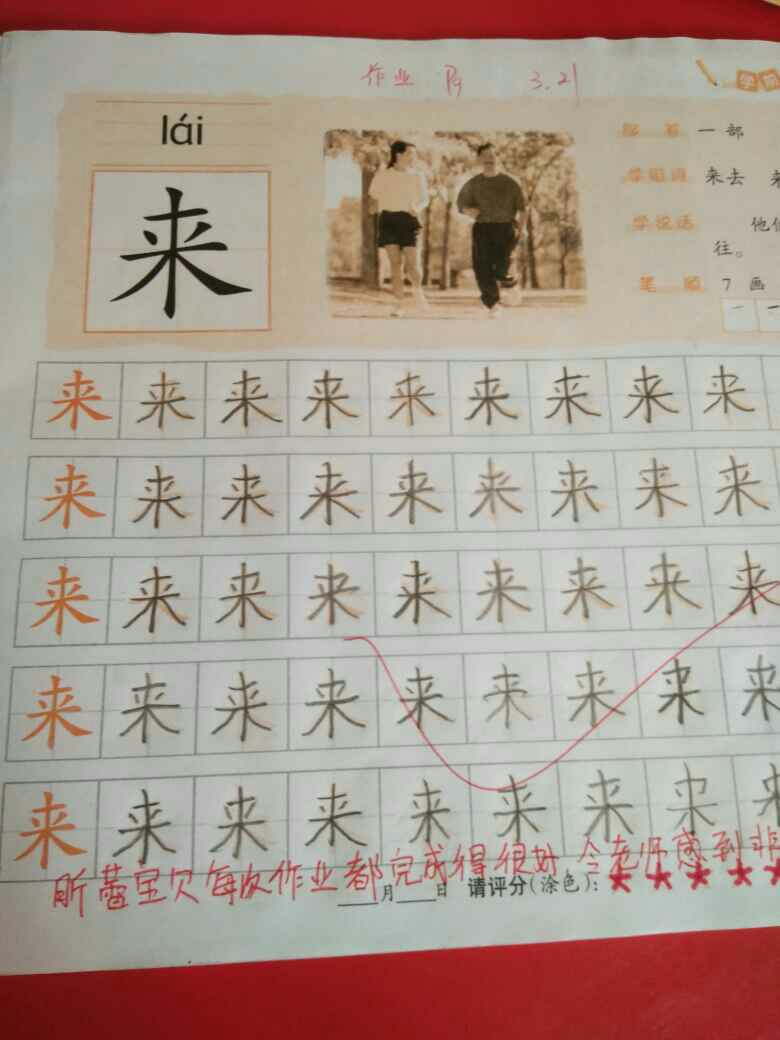 作业 P9 3.21
学前
lái
来
部首 一部
学组词 来去 来
学说话 他们
往。
笔顺 7画
一 一
来 来 来 来 来 来 来 来 来
来 来 来 来 来 来 来 来 来
来 来 来 来 来 来 来 来 来
来 来 来 来 来 来 来 来 来
来 来 来 来 来 来 来 来 来
昕蕾宝贝每次作业都完成得很好,令老师感到非
____月____日 请评分(涂色):★★★★★